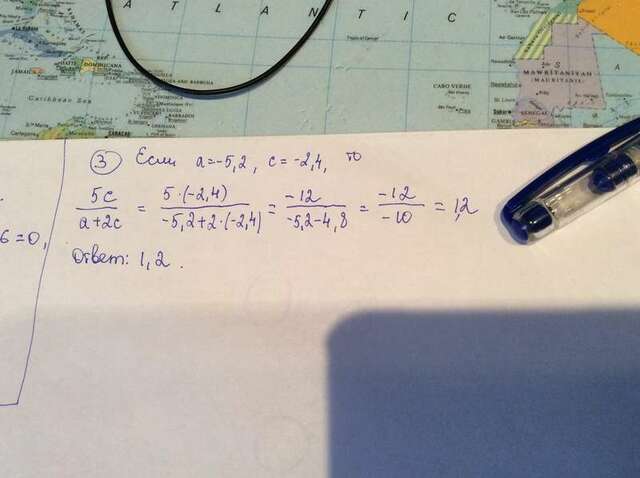 A T L A N T I C
JAMAICA
DOMINICANA
Caribbean Sea
BARBADOS
CARACAS
CABO VERDE
MAWRĪTĀNIYAH
MAURITANIE
SENEGAL
Dakar
③ Если a=-5,2, c=-2,4, то
5c/a+2c = 5·(-2,4)/-5,2+2·(-2,4) = -12/-5,2-4,8 = -12/-10 = 1,2
6=0,
Ответ: 1,2.